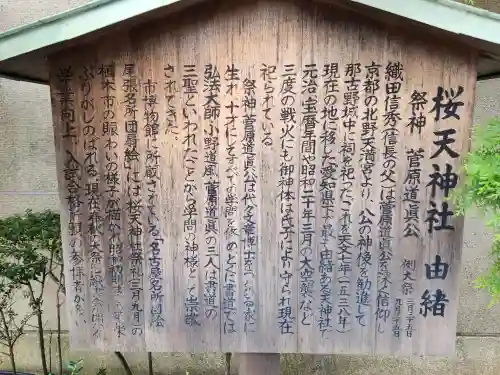 桜天神社 由緒
祭神 菅原道真公
例大祭 三月二十五日 九月二十五日
織田信秀(信長の父)は菅原道真公を深く信仰し
京都の北野天満宮より、公の神像を勧進して
那古野城中に祠を祀った。これを天文七年(一五三八年)
現在の地に移した愛知県下で最も由緒のある天神社で
元治、宝暦年間や昭和二十年三月の大空襲など
三度の戦火にも御神体は先守により守られ現在
祀られている。
祭神菅原道真公は代々
生れ十才にしてすべての学問を修めとくに書道では
弘法大師、小野道風、菅原道真の三人は書道の
三聖といわれたことから学問の神様として崇敬
されてきた。
市博物館に所蔵されている「名古屋名所団絵
尾張名所団扇絵」には桜天神社祭礼三月九月の
植木市の賑わいの様子が描かれ昭和初期
ぶりがしのばれる。現在春秋大祭に
学業向上、入試合格祈願の参拝者